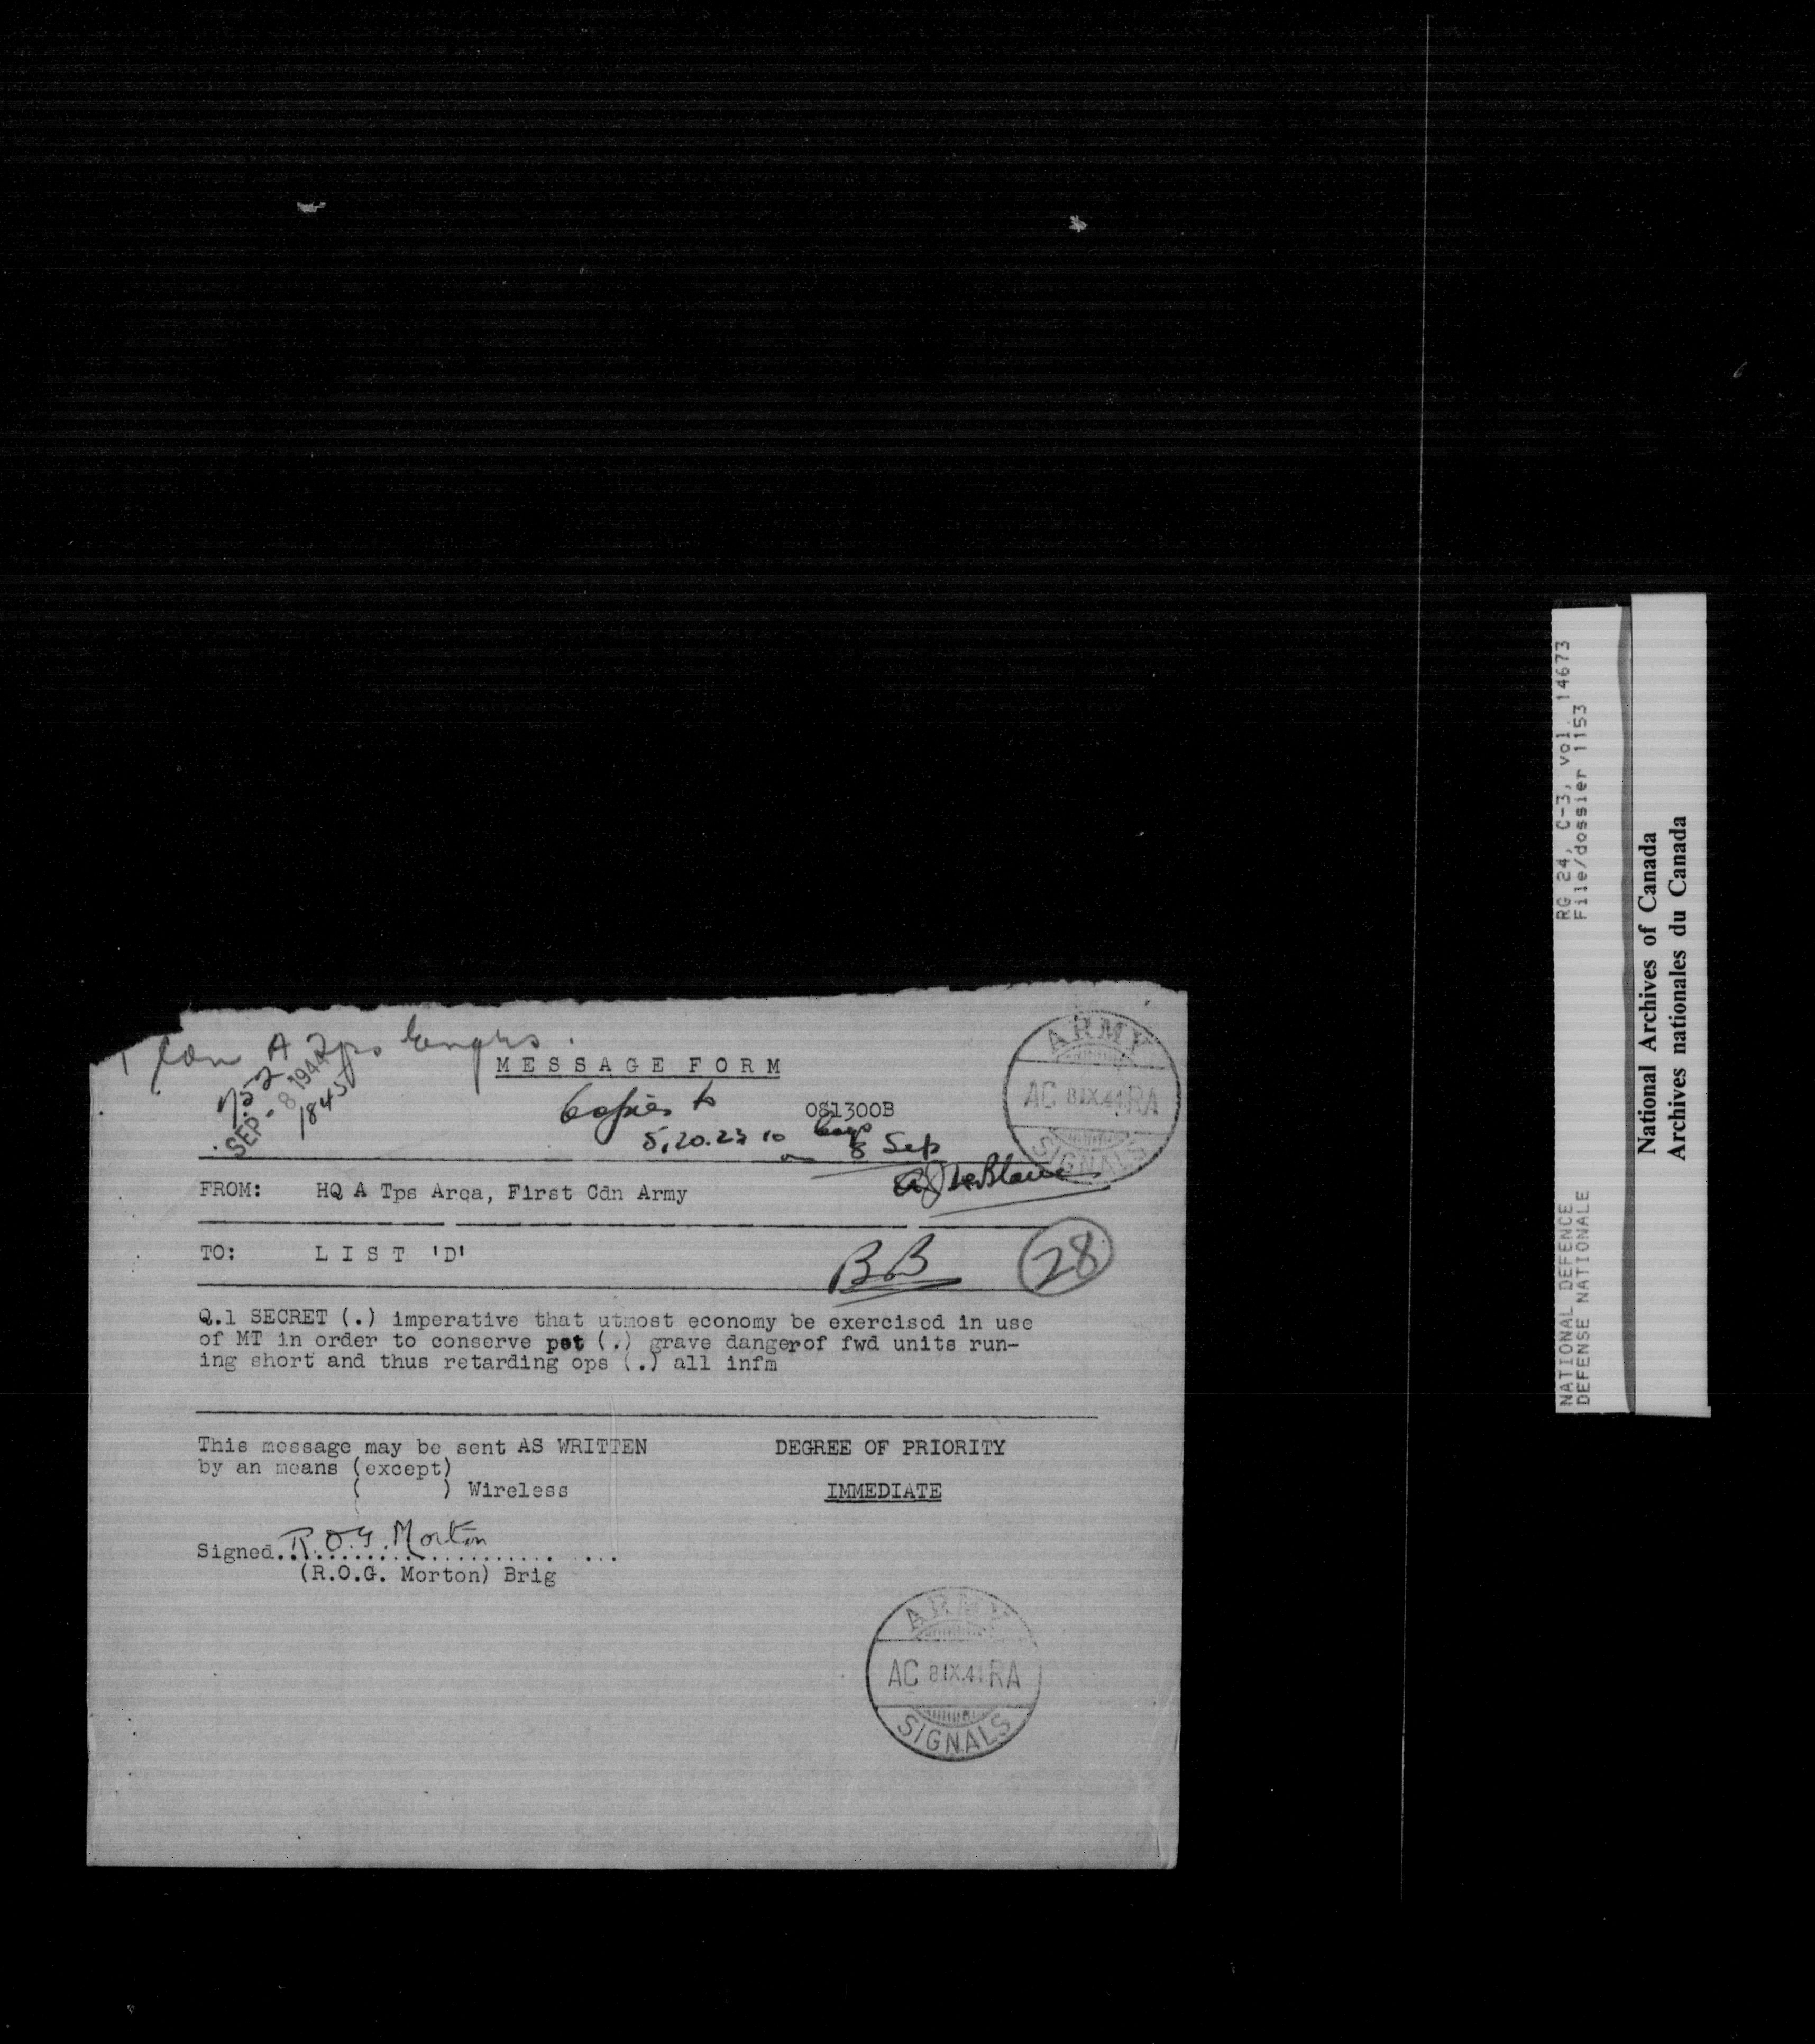 1 Cdn A Tps Engrs.
MESSAGE FORM
ARMY
AC 8IX.44 RA
SIGNALS
SEP - 8 1944
1845
Copies to
081300B
5, 20. 23 10
8 Sep
FROM: HQ A Tps Area, First Cdn Army
TO: LIST 'D'
BB
28
Q.1 SECRET (.) imperative that utmost economy be exercised in use
of MT in order to conserve pet (.) grave dangerof fwd units run-
ing short and thus retarding ops (.) all infm
This message may be sent AS WRITTEN
by an means (except)
( ) Wireless
DEGREE OF PRIORITY
IMMEDIATE
Signed R.O.G. Morton
(R.O.G. Morton) Brig
ARMY
AC 8IX.44 RA
SIGNALS
RG 24, C-3, vol. 14673
File/dossier 1153
NATIONAL DEFENCE
DEFENSE NATIONALE
National Archives of Canada
Archives nationales du Canada